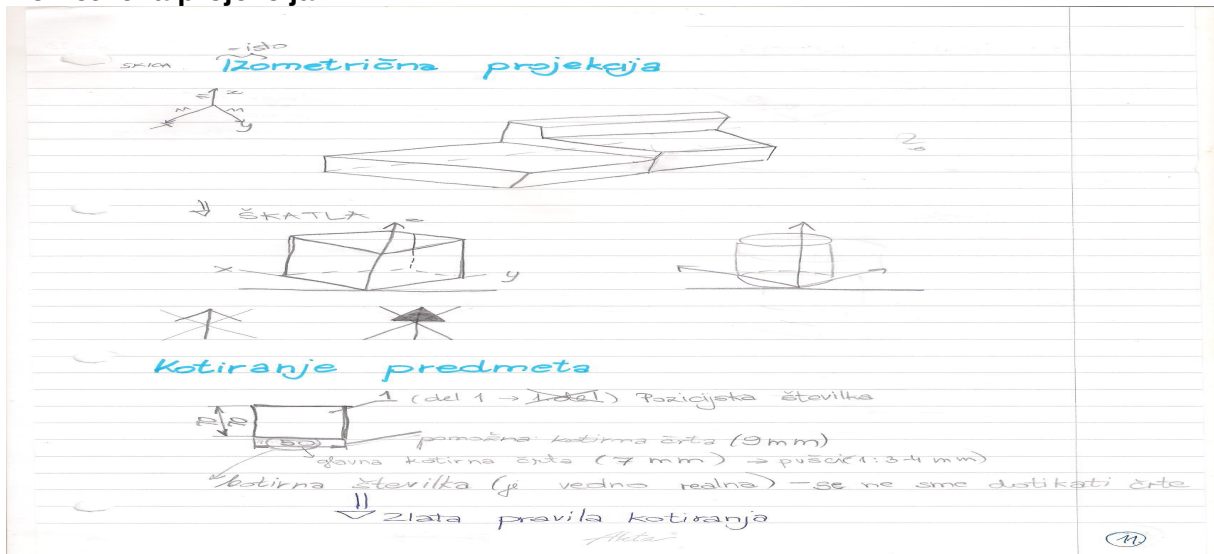 - isto
SKICA Izometrična projekcija
z
x y
⇓ ŠKATLA
z
x y
Kotiranje predmeta
1 (del 1 → 1. del) Pozicijska številka
pomožna kotirna črta (9 mm)
glavna kotirna črta (7 mm) → puščic (1:3-4 mm)
kotirna številka (je vedno realna) - se ne sme dotikati črte
⇓ Zlata pravila kotiranja
11